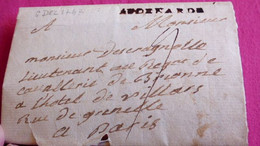 A Monsieur
monsieur descragnolle
lieutenant au Regt de
cavallerie de Brionne
a l'hotel de villars
Rue de grenelle
a paris